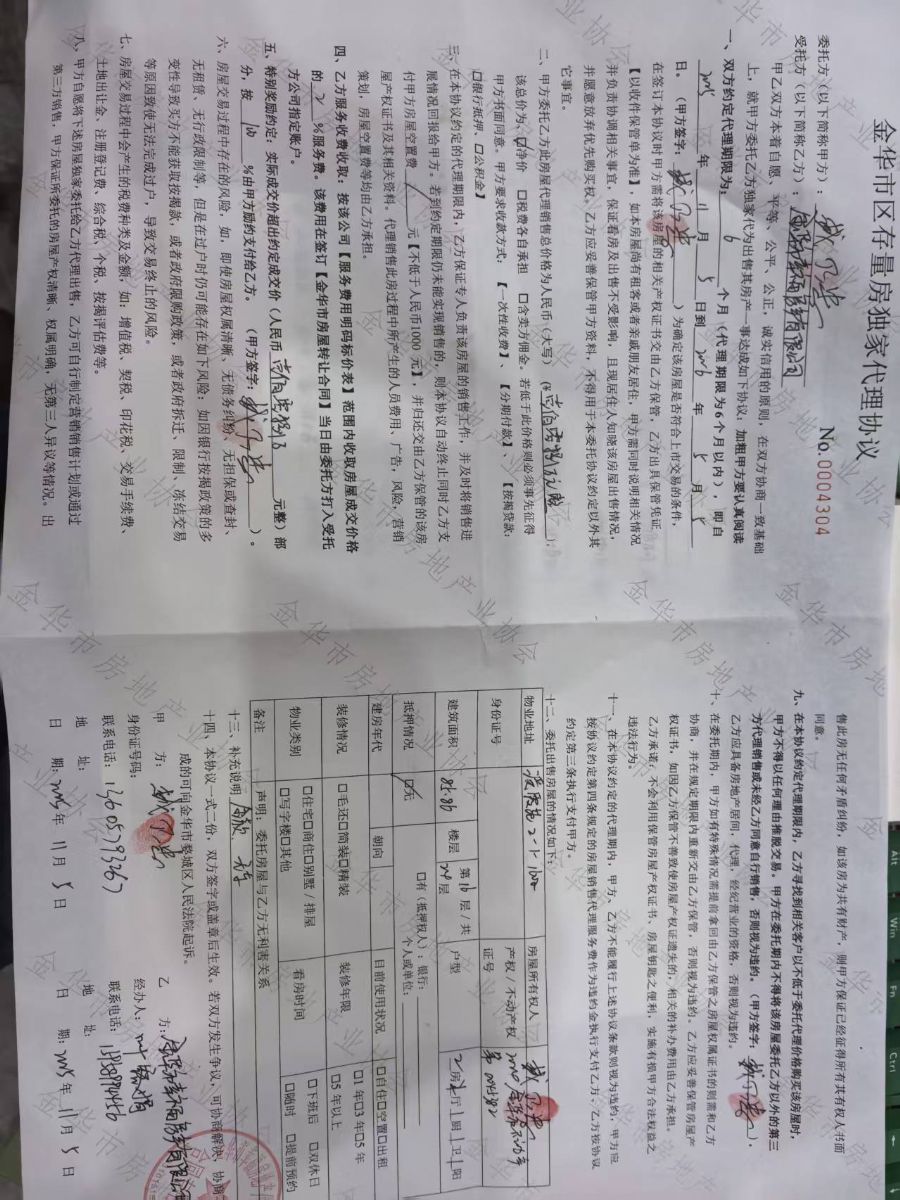 金华市区存量房独家代理协议
No.00004304
委托方（以下简称甲方）：
受托方（以下简称乙方）：
甲乙双方本着自愿、平等、公平、公正，诚实信用的原则，在双方协商一致基础
上，就甲方委托乙方独家代为出售其房产一事达成如下协议：加粗甲方要认真阅读
一、双方约定代理期限为： 6 个月（代理期限为6个月以内），即自
2025 年 11 月 5 日到 2026 年 5 月 5
日。（甲方签字： ）为确定该房屋是否符合上市交易的条件，
在签订本协议时甲方需将该房屋的相关产权证交由乙方保管，乙方出具保管凭证
【以收件保管单为准】，如本房屋尚有租客或者亲戚朋友居住，甲方需同时说明相关情况
并负责协调相关事宜，保证看房及出售不受影响，且现居住人知晓该房屋出售情况，
并愿意放弃优先购买权。乙方应妥善保管甲方资料，不得用于本委托协议约定以外其
它事宜。
二、甲方委托乙方此房屋代理销售总价格为人民币（大写）（ ）；
该总价为：☑净价 □税费各自承担 □含卖方佣金。若低于此价格则必须事先征得
甲方书面同意。甲方要求收款方式：【一次性收费】、【分期付款】、【按揭贷款：
□银行抵押、□公积金】
三、在本协议约定的代理期限内，乙方保证专人负责该房屋的销售工作，并及时将销售进
展情况回报给甲方。若到约定期限仍未能实现销售的，则本协议自动终止同时乙方支
付甲方房屋空置费 / 元【不低于人民币1000元】，并归还交由乙方保管的该房
屋产权证书及其相关资料。代理销售此房过程中所产生的人员费用、广告、风险、营销
策划，房屋空置费等均由乙方承担。
四、乙方服务收费收取：按该公司【服务费用明码标价表】范围内收取房屋成交价格
的 2 %服务费。该费用在签订【金华市房屋转让合同】当日由委托方打入受托
方公司指定账户。
五、特别奖励约定：实际成交价超出约定成交价（人民币 元整）部
分，按 10 %由甲方励约支付给乙方。（甲方签字： ）。
六、房屋交易过程中存在的风险，如，即使房屋权属清晰、无债务纠纷、无担保或查封、
无租赁、无行政限制等，但是在过户时仍可能存在如下风险：如因银行按揭政策的多
变性导致买方不能获取按揭款，或者政府限购政策，或者政府拆迁、限制、冻结交易
等原因致使无法完成过户，导致交易终止的风险。
七、房屋交易过程中会产生的税费种类及金额，如：增值税、契税、印花税、交易手续费、
土地出让金、注册登记费、综合税、个税、按揭评估费等。
八、甲方自愿将下述房屋独家委托给乙方代理出售，乙方可自行制定营销销售计划或通过
第三方销售，甲方保证所委托的房屋产权清晰、权属明确，无第三人异议等情况。出
售此房无任何矛盾纠纷，如该房为共有财产，则甲方保证已经征得所有共有权人书面
同意。
九、在本协议约定代理期限内，乙方寻找到相关客户以不低于委托代理价格购买该房屋时，
甲方不得以任何理由推脱交易，甲方在委托期内不得将该房屋委托乙方以外的第三
方代理销售或未经乙方同意自行销售，否则视为违约。（甲方签字： ）；
乙方应具备房地产居间，代理，经纪营业的资格，否则视为违约。
十、在委托期内，甲方如有特殊情况需提前拿回由乙方保管之房屋权属证书的则需和乙方
协商，并在规定期限内重新交由乙方保管，否则视为违约。乙方应妥善保管房屋产
权证书，如因乙方保管不善致使房屋产权证遗失的，相关的补办费用由乙方承担。
乙方承诺：不会利用保管房屋产权证书、房屋钥匙之便利，实施有损甲方合法权益之
违法行为。
十一、在本协议约定的代理期内，甲方、乙方不能履行上述协议条款则视为违约，甲方应
按协议约定第四条规定的房屋销售代理服务费作为违约金执行支付乙方、乙方按协议
约定第三条执行支付甲方。
十二、委托出售房屋的情况如下：
物业地址 房屋所有权人
身份证号 产权、不动产权证号
建筑面积 楼层 第16层/共 层 户型 2房 厅1厨1卫1阳
抵押情况 ☑无 □有（抵押权人）：银行： 个人或单位：
建房年代 朝向 目前使用状况 □自住□空置□出租
装修情况 □毛坯□简装□精装 装修年限 □1年□3年□5年 □5年以上
物业类别 □住宅□商住□别墅/排屋 □写字楼□其他 看房时间 □下班后 □双休日 □随时 □提前预约
备注 声明：委托房屋与乙方无利害关系
十三、补充说明：
十四、本协议一式二份，双方签字或盖章后生效。若双方发生争议，可协商解决，协商
成的可向金华市婺城区人民法院起诉。
甲 方：
乙 方：
身份证号码：
经办人：
联系电话：13605793267
联系电话：
地 址：
地 址：
日 期：2025年 11月 5日
日 期：2025年 11月 5日
金华市房地产业协会
Alt
Win
Fn
Ctrl